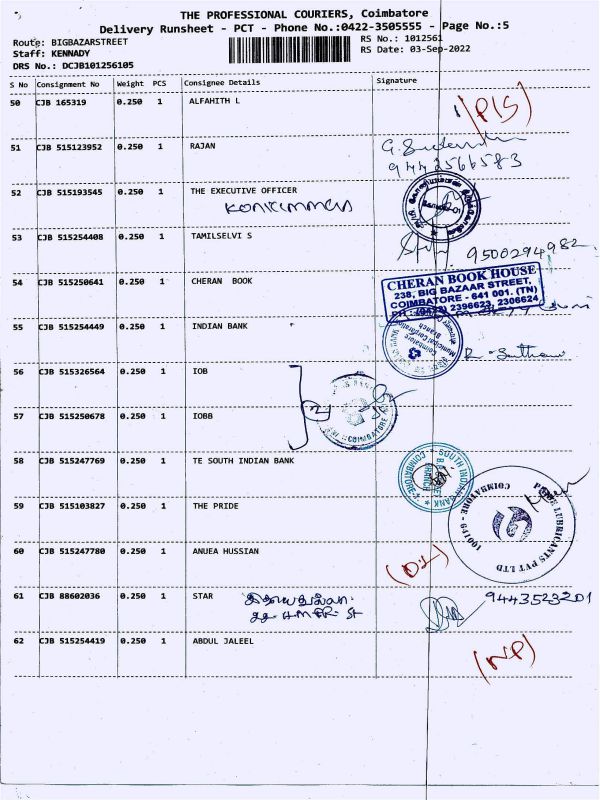 THE PROFESSIONAL COURIERS, Coimbatore
Delivery Runsheet - PCT - Phone No.:0422-3505555 - Page No.:5
Route: BIGBAZARSTREET
RS No.: 1012561
Staff: KENNADY
RS Date: 03-Sep-2022
DRS No.: DCJB101256105
S No Consignment No Weight PCS Consignee Details Signature
50 CJB 165319 0.250 1 ALFAHITH L
51 CJB 515123952 0.250 1 RAJAN
9442566583
52 CJB 515193545 0.250 1 THE EXECUTIVE OFFICER
53 CJB 515254408 0.250 1 TAMILSELVI S
9500294982
54 CJB 515250641 0.250 1 CHERAN BOOK
CHERAN BOOK HOUSE
238, BIG BAZAAR STREET,
COIMBATORE - 641 001. (TN)
PH : (0422) 2396623, 2306624
55 CJB 515254449 0.250 1 INDIAN BANK
56 CJB 515326564 0.250 1 IOB
57 CJB 515250678 0.250 1 IOBB
COIMBATORE
58 CJB 515247769 0.250 1 TE SOUTH INDIAN BANK
SOUTH INDIAN BANK
COIMBATORE
59 CJB 515103827 0.250 1 THE PRIDE
PRIDE LUBRICANTS PVT LTD
60 CJB 515247780 0.250 1 ANUEA HUSSIAN
(D.L)
61 CJB 88602036 0.250 1 STAR
9443523201
62 CJB 515254419 0.250 1 ABDUL JALEEL
(NP)